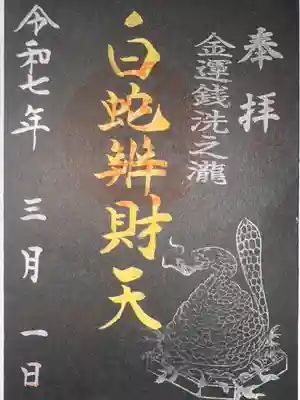 奉拝
金運銭洗之瀧
白蛇辨財天
令和七年 三月 一日